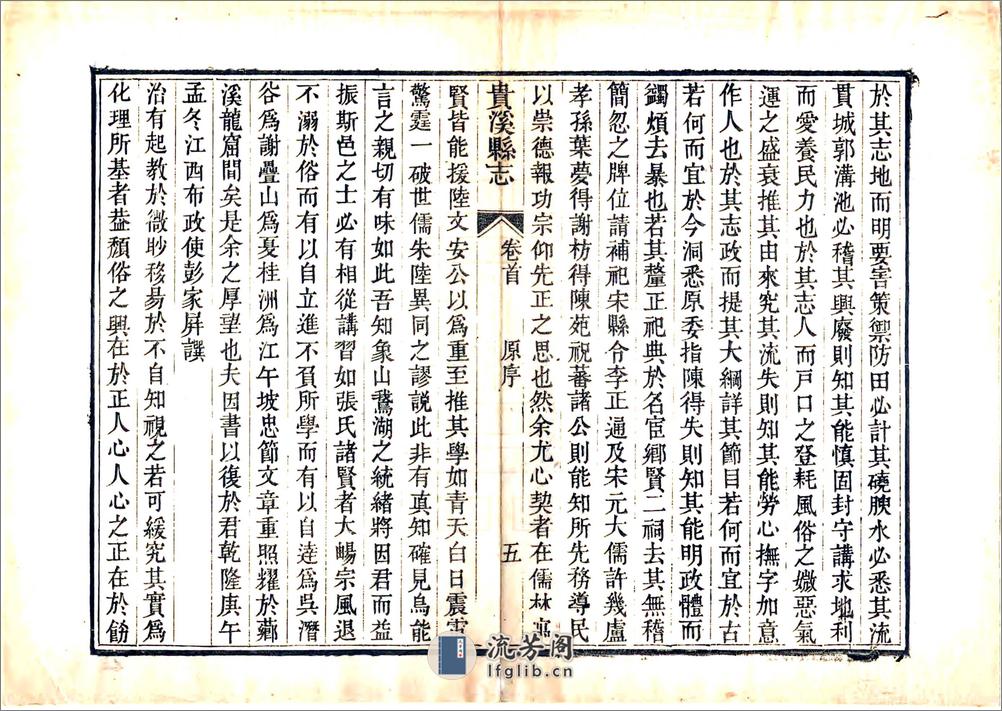 於其志地而明要害策禦防田必計其磽腴水必悉其流
貫城郭溝池必稽其興廢則知其能慎固封守講求地利
而愛養民力也於其志人而戸口之登耗風俗之媺惡氣
運之盛衰推其由來究其流失則知其能勞心撫字加意
作人也於其志政而提其大綱詳其節目若何而宜於古
若何而宜於今洞悉原委指陳得失則知其能明政體而
蠲煩去暴也若其釐正祀典於名宦鄉賢二祠去其無稽
簡忽之牌位請補祀宋縣令李正通及宋元大儒許幾盧
孝孫葉夢得謝枋得陳苑祝蕃諸公則能知所先務導民
以崇德報功宗仰先正之思也然余尤心契者在儒林
貴溪縣志
卷首
原序
五
賢皆能援陸文安公以爲重至推其學如青天白日震雷
驚霆一破世儒朱陸異同之謬説此非有真知確見烏能
言之親切有味如此吾知象山鵞湖之統緒將因君而益
振斯邑之士必有相從講習如張氏諸賢者大暢宗風退
不溺於俗而有以自立進不負所學而有以自逹爲吳潛
谷爲謝疊山爲夏桂洲爲江午坡忠節文章重照耀於薌
溪龍窟間矣是余之厚望也夫因書以復於君乾隆庚午
孟冬江西布政使彭家屏譔
治有起教於微眇移易於不自知視之若可緩究其實爲
化理所基者葢頽俗之興在於正人心人心之正在於飭
流芳阁
lfglib.cn